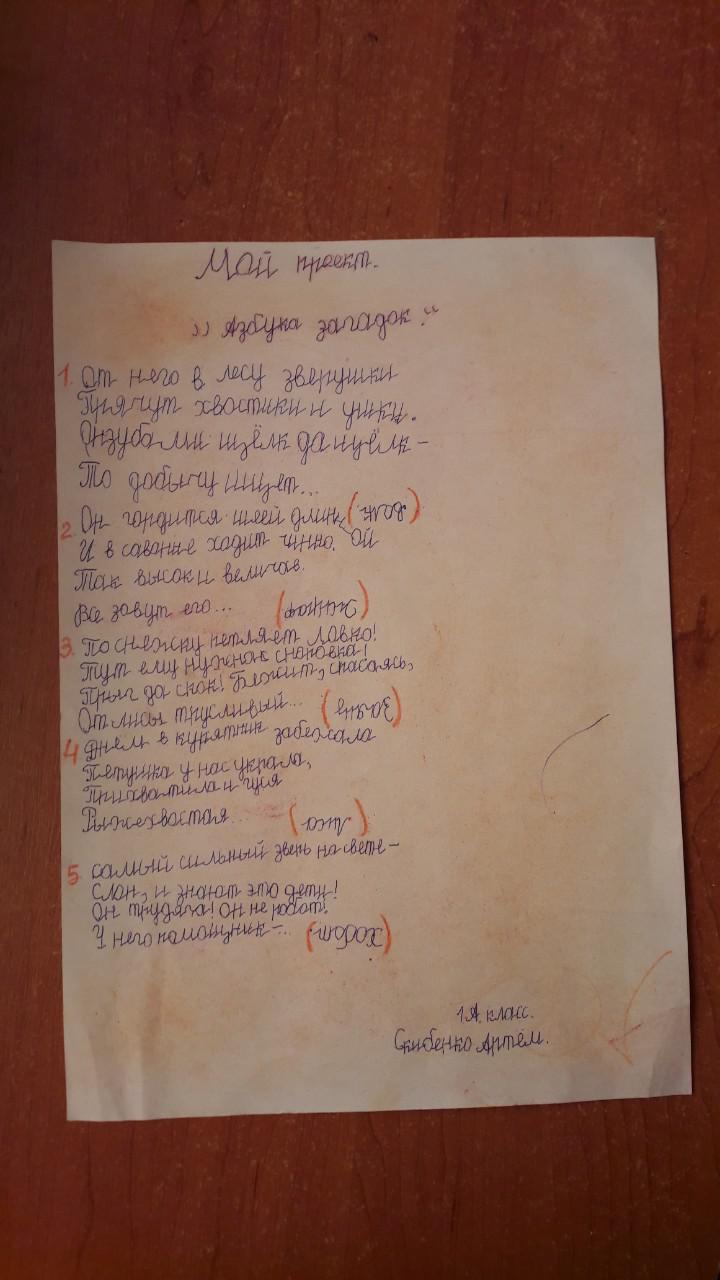 Мой проект.
,, Азбука загадок."
1. От него в лесу зверушки
Прячут хвостики и ушки.
Он зубами щёлк да щёлк –
То добычу ищет...
2. Он гордится шеей длинн (волк.)
И в саванне ходит чинно. ой
Так высок и величав.
Все зовут его... (жираф)
3. По снежку петляет ловко!
Тут ему нужна сноровка!
Прыг да скок! Бежит, спасаясь,
От лисы трусливый... (заяц)
4 Днём в курятник забежала
Петушка у нас украла,
Прихватила и гуся
Рыжехвостая... (лиса)
5. самый сильный зверь на свете –
Слон, и знают это дети!
Он трудяга! Он не робот!
У него помощник –... (хобот)
1А. класс.
Скибенко Артём.